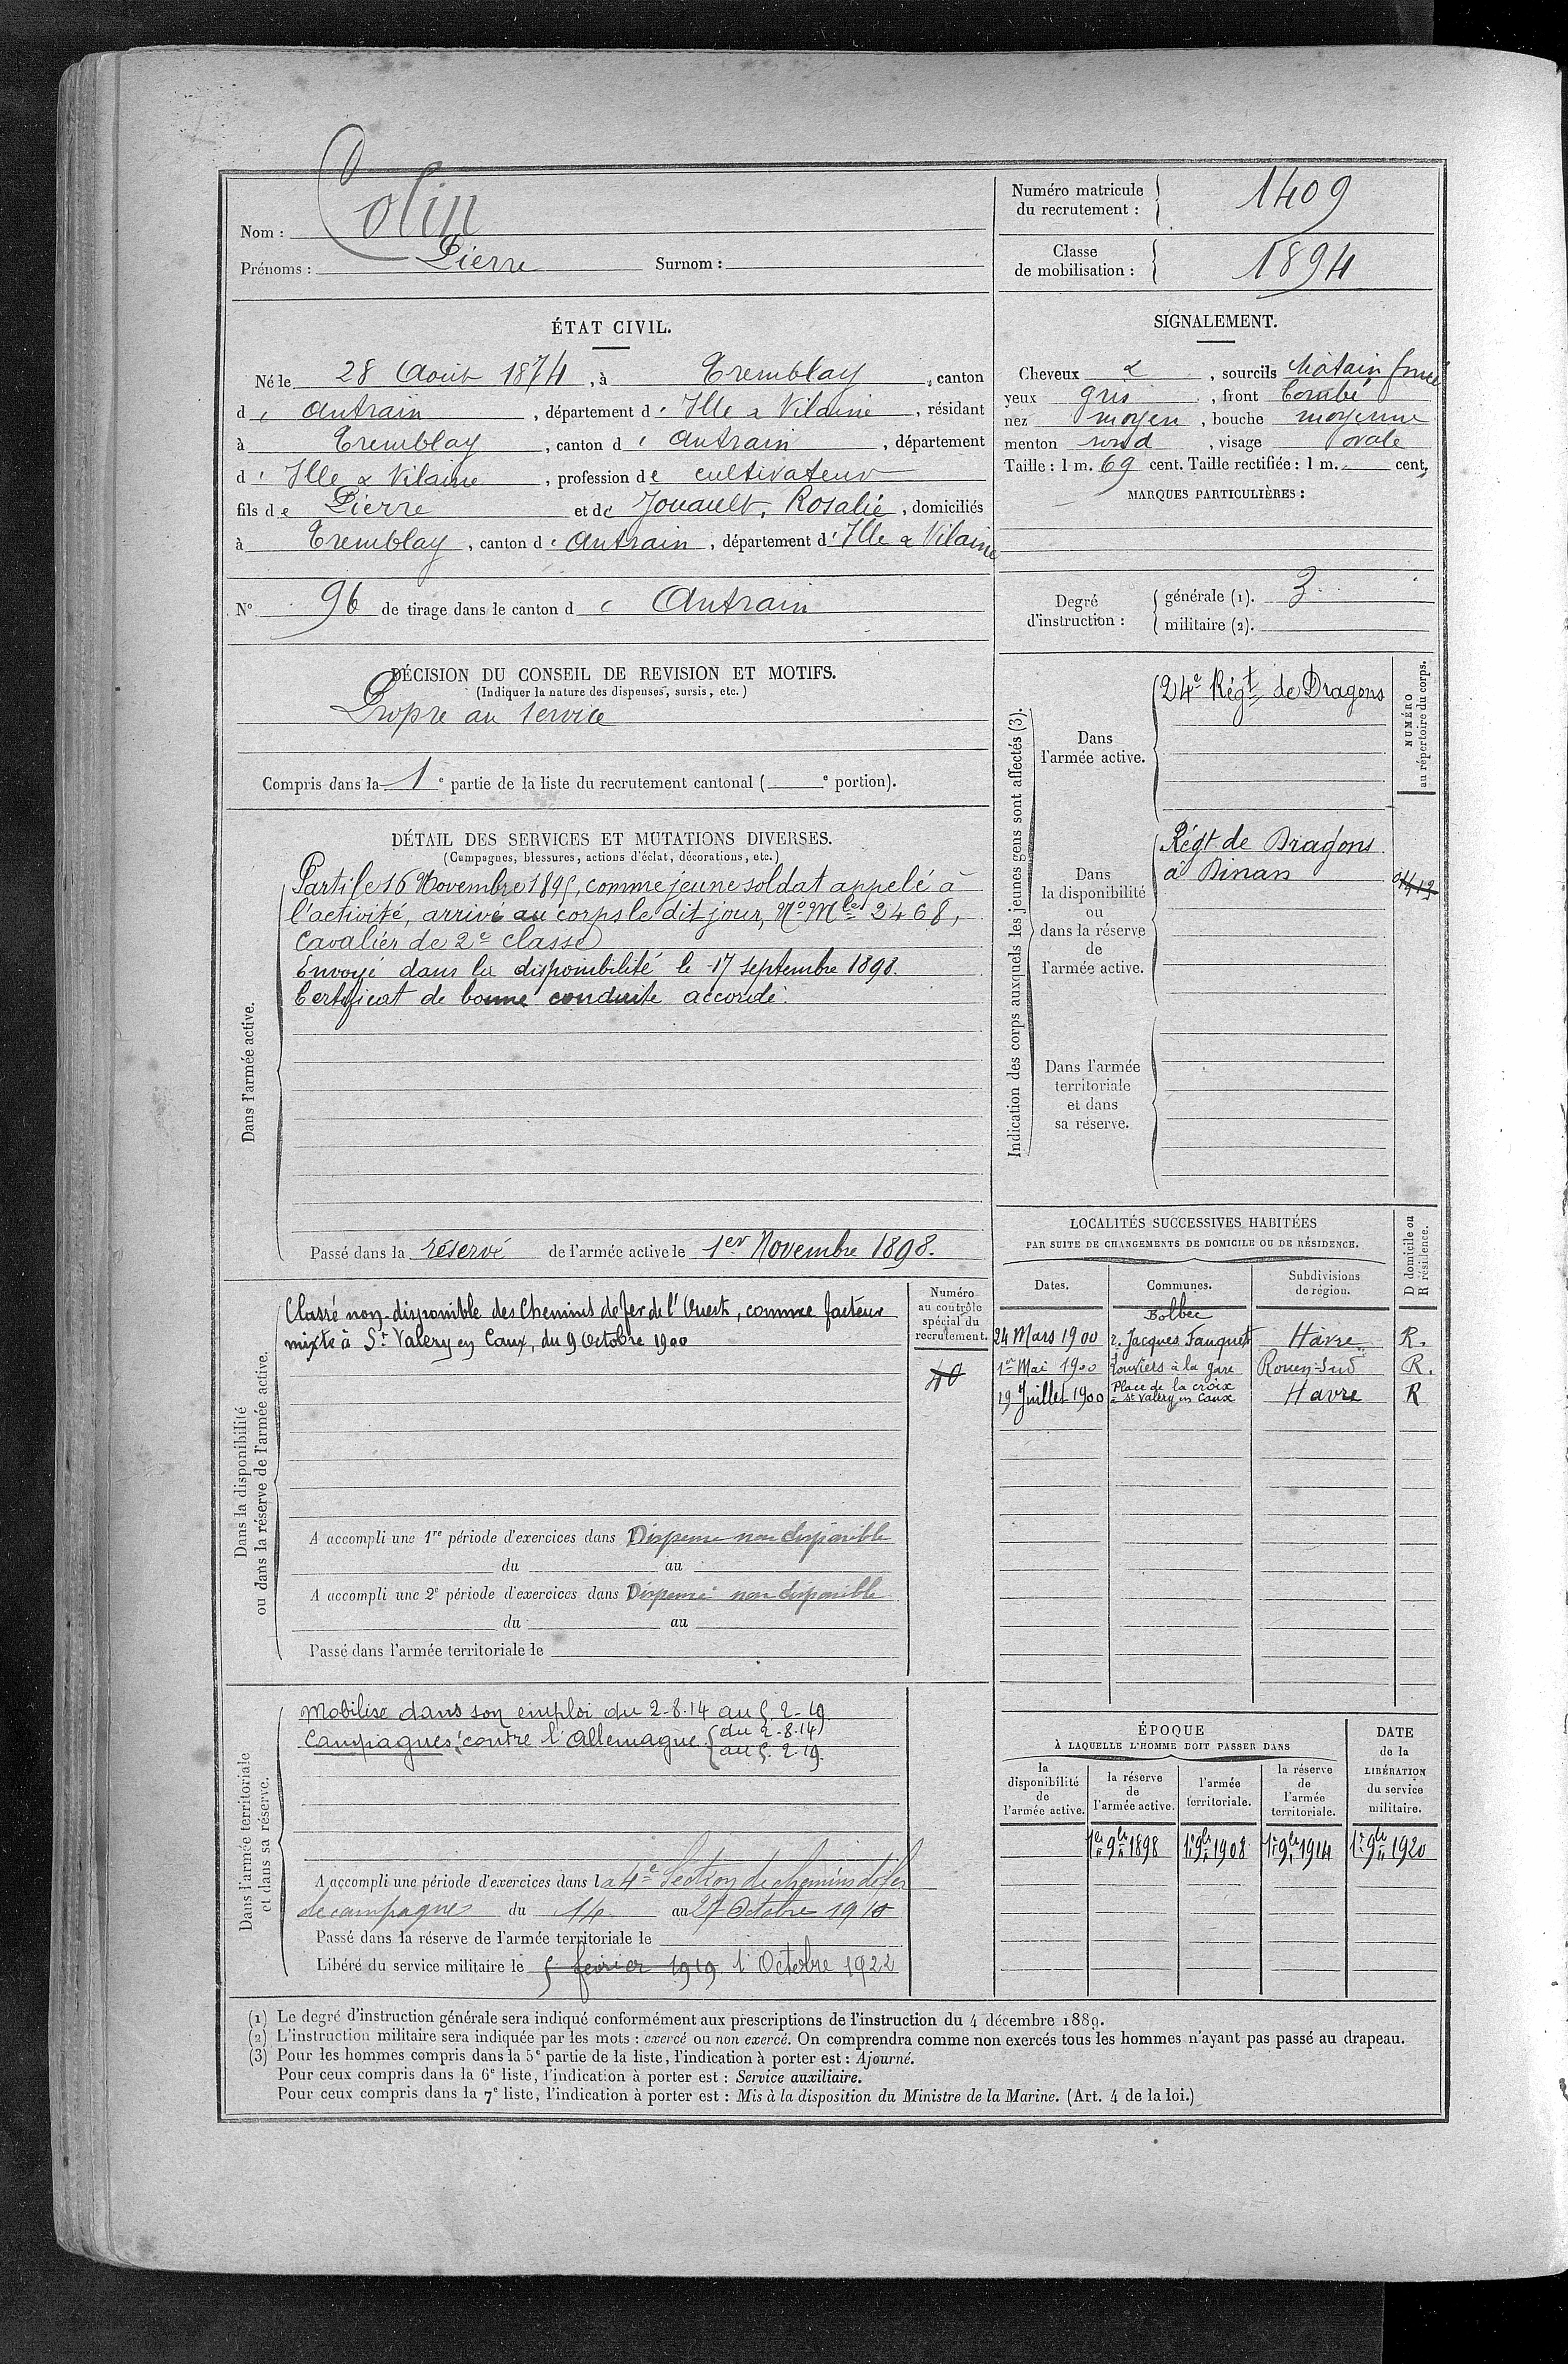 Nom : Colin
Prénoms : Pierre Surnom :
Numéro matricule du recrutement : 1409
Classe de mobilisation : 1894
ÉTAT CIVIL.
Né le 28 Août 1874, à Tremblay, canton
d' Antrain, département d' Ille & Vilaine, résidant
à Tremblay, canton d' Antrain, département
d' Ille & Vilaine, profession de cultivateur
fils de Pierre et de Jouault, Rosalie, domiciliés
à Tremblay, canton d' Antrain, département d' Ille & Vilaine
N° 96 de tirage dans le canton d' Antrain
SIGNALEMENT.
Cheveux &, sourcils châtain foncé
yeux gris, front bombé
nez moyen, bouche moyenne
menton rond, visage ovale
Taille : 1 m. 69 cent. Taille rectifiée : 1 m. cent.
MARQUES PARTICULIÈRES :
Degré d'instruction :
générale (1). 3
militaire (2).
DÉCISION DU CONSEIL DE REVISION ET MOTIFS.
(Indiquer la nature des dispenses, sursis, etc.)
Propre au service
Compris dans la 1e partie de la liste du recrutement cantonal ( e portion).
DÉTAIL DES SERVICES ET MUTATIONS DIVERSES.
(Campagnes, blessures, actions d'éclat, décorations, etc.)
Dans l'armée active.
Parti le 16 Novembre 1895, comme jeune soldat appelé à
l'activité, arrivé au corps le dit jour, No Mle 2468,
Cavalier de 2e classe
Envoyé dans la disponibilité le 17 septembre 1898.
Certificat de bonne conduite accordé.
Passé dans la réserve de l'armée active le 1er Novembre 1898.
Indication des corps auxquels les jeunes gens sont affectés (3).
NUMÉRO
au répertoire du corps.
Dans
l'armée active.
24e Régt de Dragons
Dans
la disponibilité
ou
dans la réserve
de
l'armée active.
Régt de Dragons
à Dinan
Dans l'armée
territoriale
et dans
sa réserve.
Dans la disponibilité
ou dans la réserve de l'armée active.
Classé non-disponible des Chemins de fer de l'Ouest, comme facteur
mixte à St Valery en Caux, du 9 Octobre 1900
Numéro
au contrôle
spécial du
recrutement.
40
A accompli une 1re période d'exercices dans Dispensé non disponible
du au
A accompli une 2e période d'exercices dans Dispensé non disponible
du au
Passé dans l'armée territoriale le
LOCALITÉS SUCCESSIVES HABITÉES
PAR SUITE DE CHANGEMENTS DE DOMICILE OU DE RÉSIDENCE.
Dates. Communes. Subdivisions de région. D domicile ou R résidence.
Bolbec
24 Mars 1900 r. Jacques Fauquet Havre R.
1er Mai 1900 Louviers à la gare Rouen-Sud R.
19 Juillet 1900 Place de la croix à St Valery en Caux Havre R
Dans l'armée territoriale
et dans sa réserve.
Mobilisé dans son emploi du 2-8-14 au 5-2-19.
Campagnes : contre l'Allemagne du 2-8-14
au 5-2-19.
A accompli une période d'exercices dans la 4e Section de chemins de fer
de campagne du 14 au 27 Octobre 1910
Passé dans la réserve de l'armée territoriale le
Libéré du service militaire le 5 février 1919 1 Octobre 1922
ÉPOQUE
À LAQUELLE L'HOMME DOIT PASSER DANS
la disponibilité de l'armée active.
la réserve de l'armée active.
l'armée territoriale.
la réserve de l'armée territoriale.
DATE de la LIBÉRATION du service militaire.
1er 9bre 1898 1er 9bre 1908 1er 9bre 1914 1er 9bre 1920
(1) Le degré d'instruction générale sera indiqué conformément aux prescriptions de l'instruction du 4 décembre 1889.
(2) L'instruction militaire sera indiquée par les mots : exercé ou non exercé. On comprendra comme non exercés tous les hommes n'ayant pas passé au drapeau.
(3) Pour les hommes compris dans la 5e partie de la liste, l'indication à porter est : Ajourné.
Pour ceux compris dans la 6e liste, l'indication à porter est : Service auxiliaire.
Pour ceux compris dans la 7e liste, l'indication à porter est : Mis à la disposition du Ministre de la Marine. (Art. 4 de la loi.)